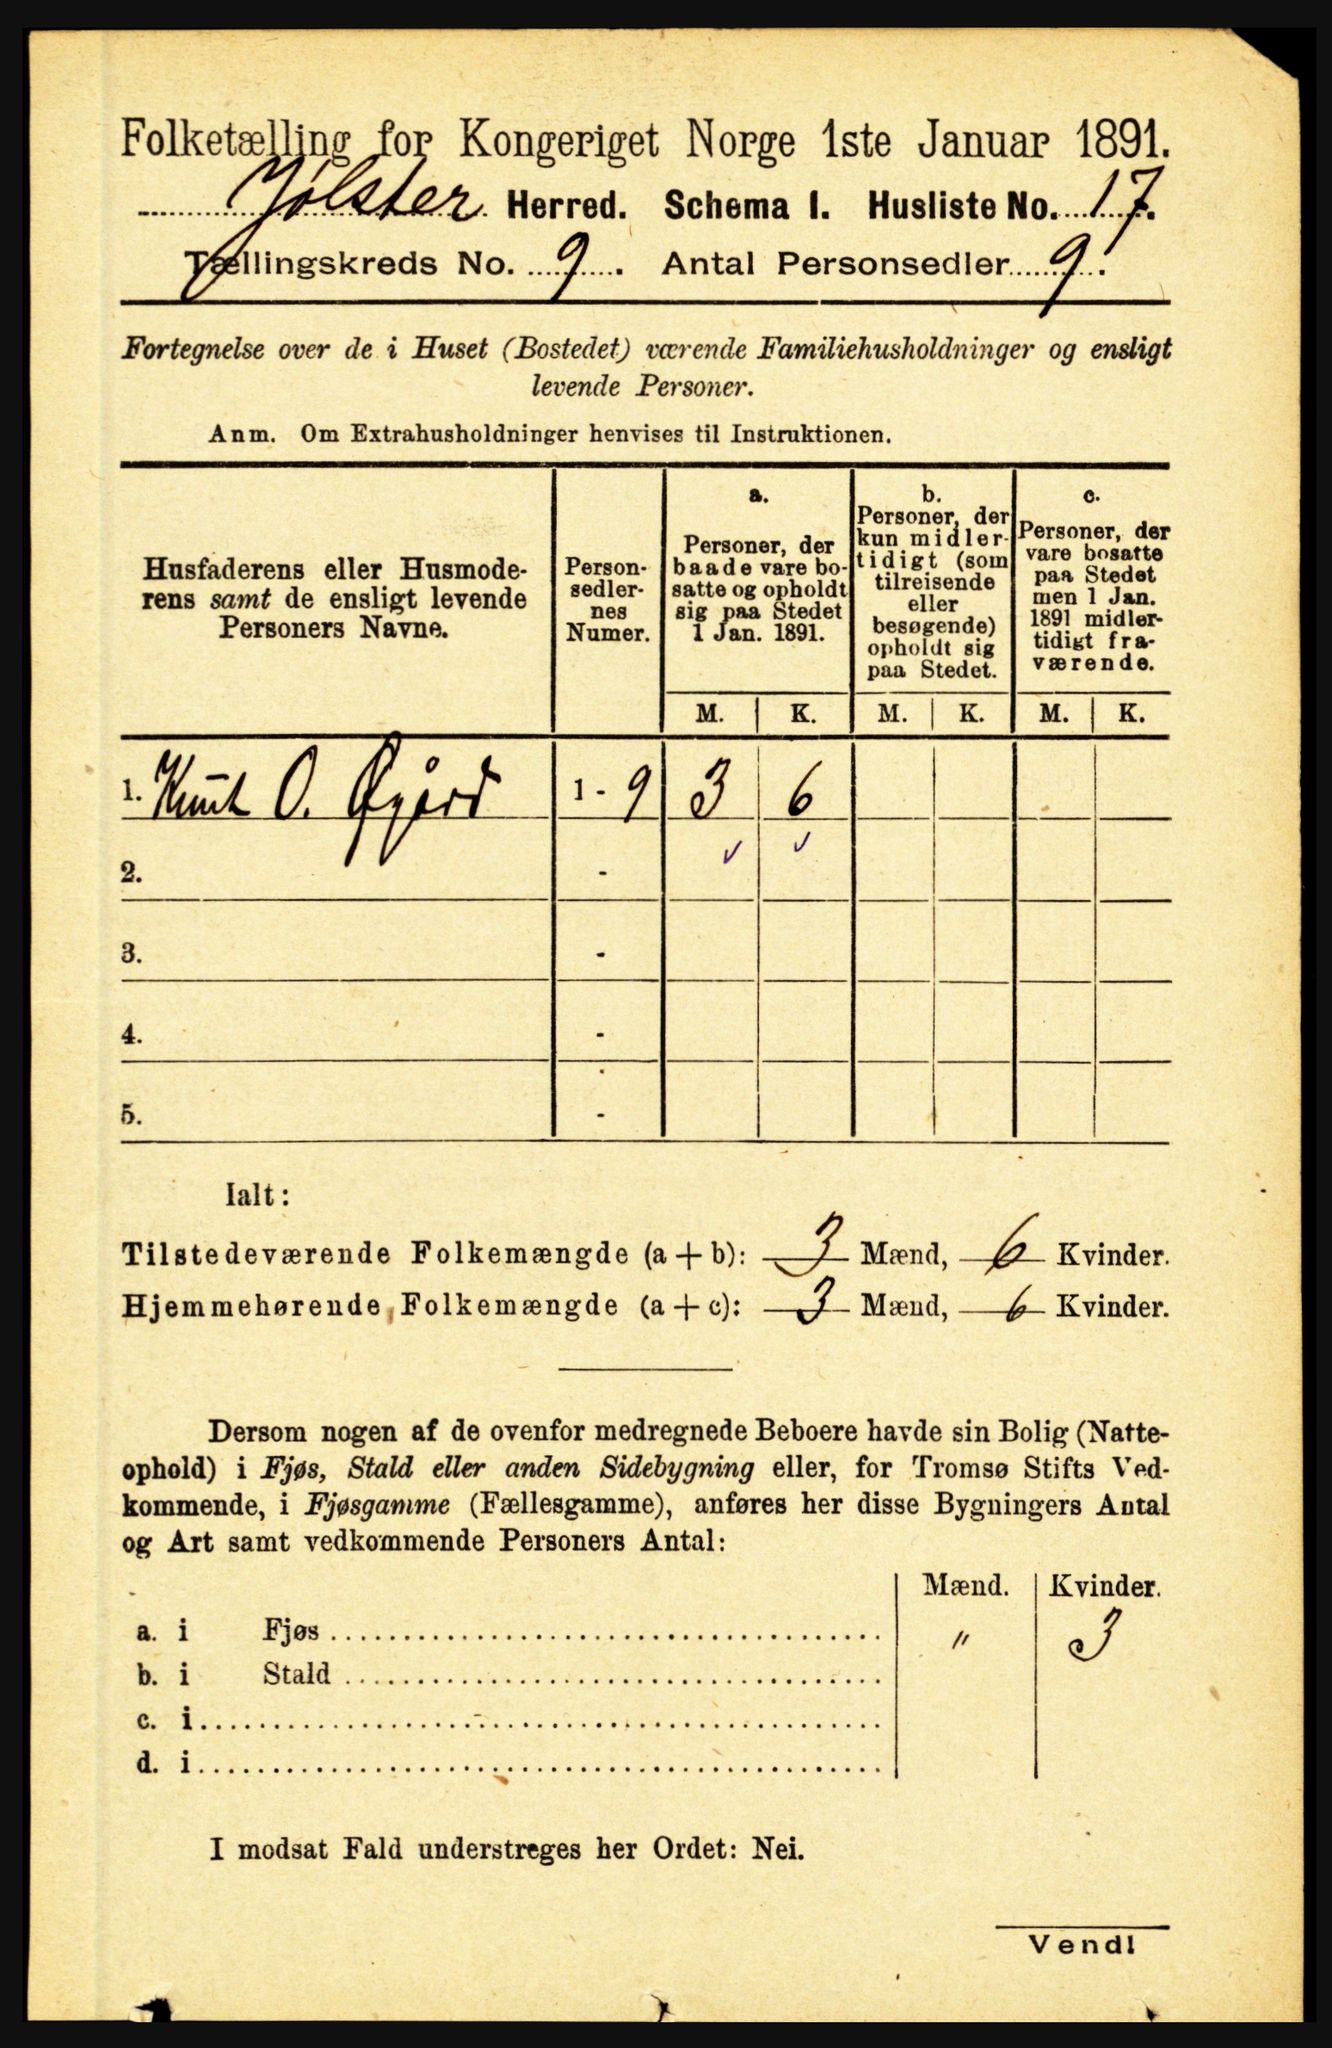 Folketælling for Kongeriget Norge 1ste Januar 1891.
Jølster Herred. Schema I. Husliste No. 17.
Tællingskreds No. 9. Antal Personsedler 9.
Fortegnelse over de i Huset (Bostedet) værende Familiehusholdninger og ensligt
levende Personer.
Anm. Om Extrahusholdninger henvises til Instruktionen.
Husfaderens eller Husmode-
rens samt de ensligt levende
Personers Navne.
Person-
sedler-
nes
Numer.
a.
Personer, der
baade vare bo-
satte og opholdt
sig paa Stedet
1 Jan. 1891.
b.
Personer, der
kun midler-
tidigt (som
tilreisende
eller
besøgende)
opholdt sig
paa Stedet.
c.
Personer, der
vare bosatte
paa Stedet
men 1 Jan.
1891 midler-
tidigt fra-
værende.
M. K. M. K. M. K.
1. Knut O. Øyård 1 - 9 3 6
2. -
3. -
4. -
5. -
Ialt:
Tilstedeværende Folkemængde (a + b): 3 Mænd, 6 Kvinder.
Hjemmehørende Folkemængde (a + c): 3 Mænd, 6 Kvinder.
Dersom nogen af de ovenfor medregnede Beboere havde sin Bolig (Natte-
ophold) i Fjøs, Stald eller anden Sidebygning eller, for Tromsø Stifts Ved-
kommende, i Fjøsgamme (Fællesgamme), anføres her disse Bygningers Antal
og Art samt vedkommende Personers Antal:
Mænd. Kvinder.
a. i Fjøs " 3
b. i Stald
c. i
d. i
I modsat Fald understreges her Ordet: Nei.
Vend!